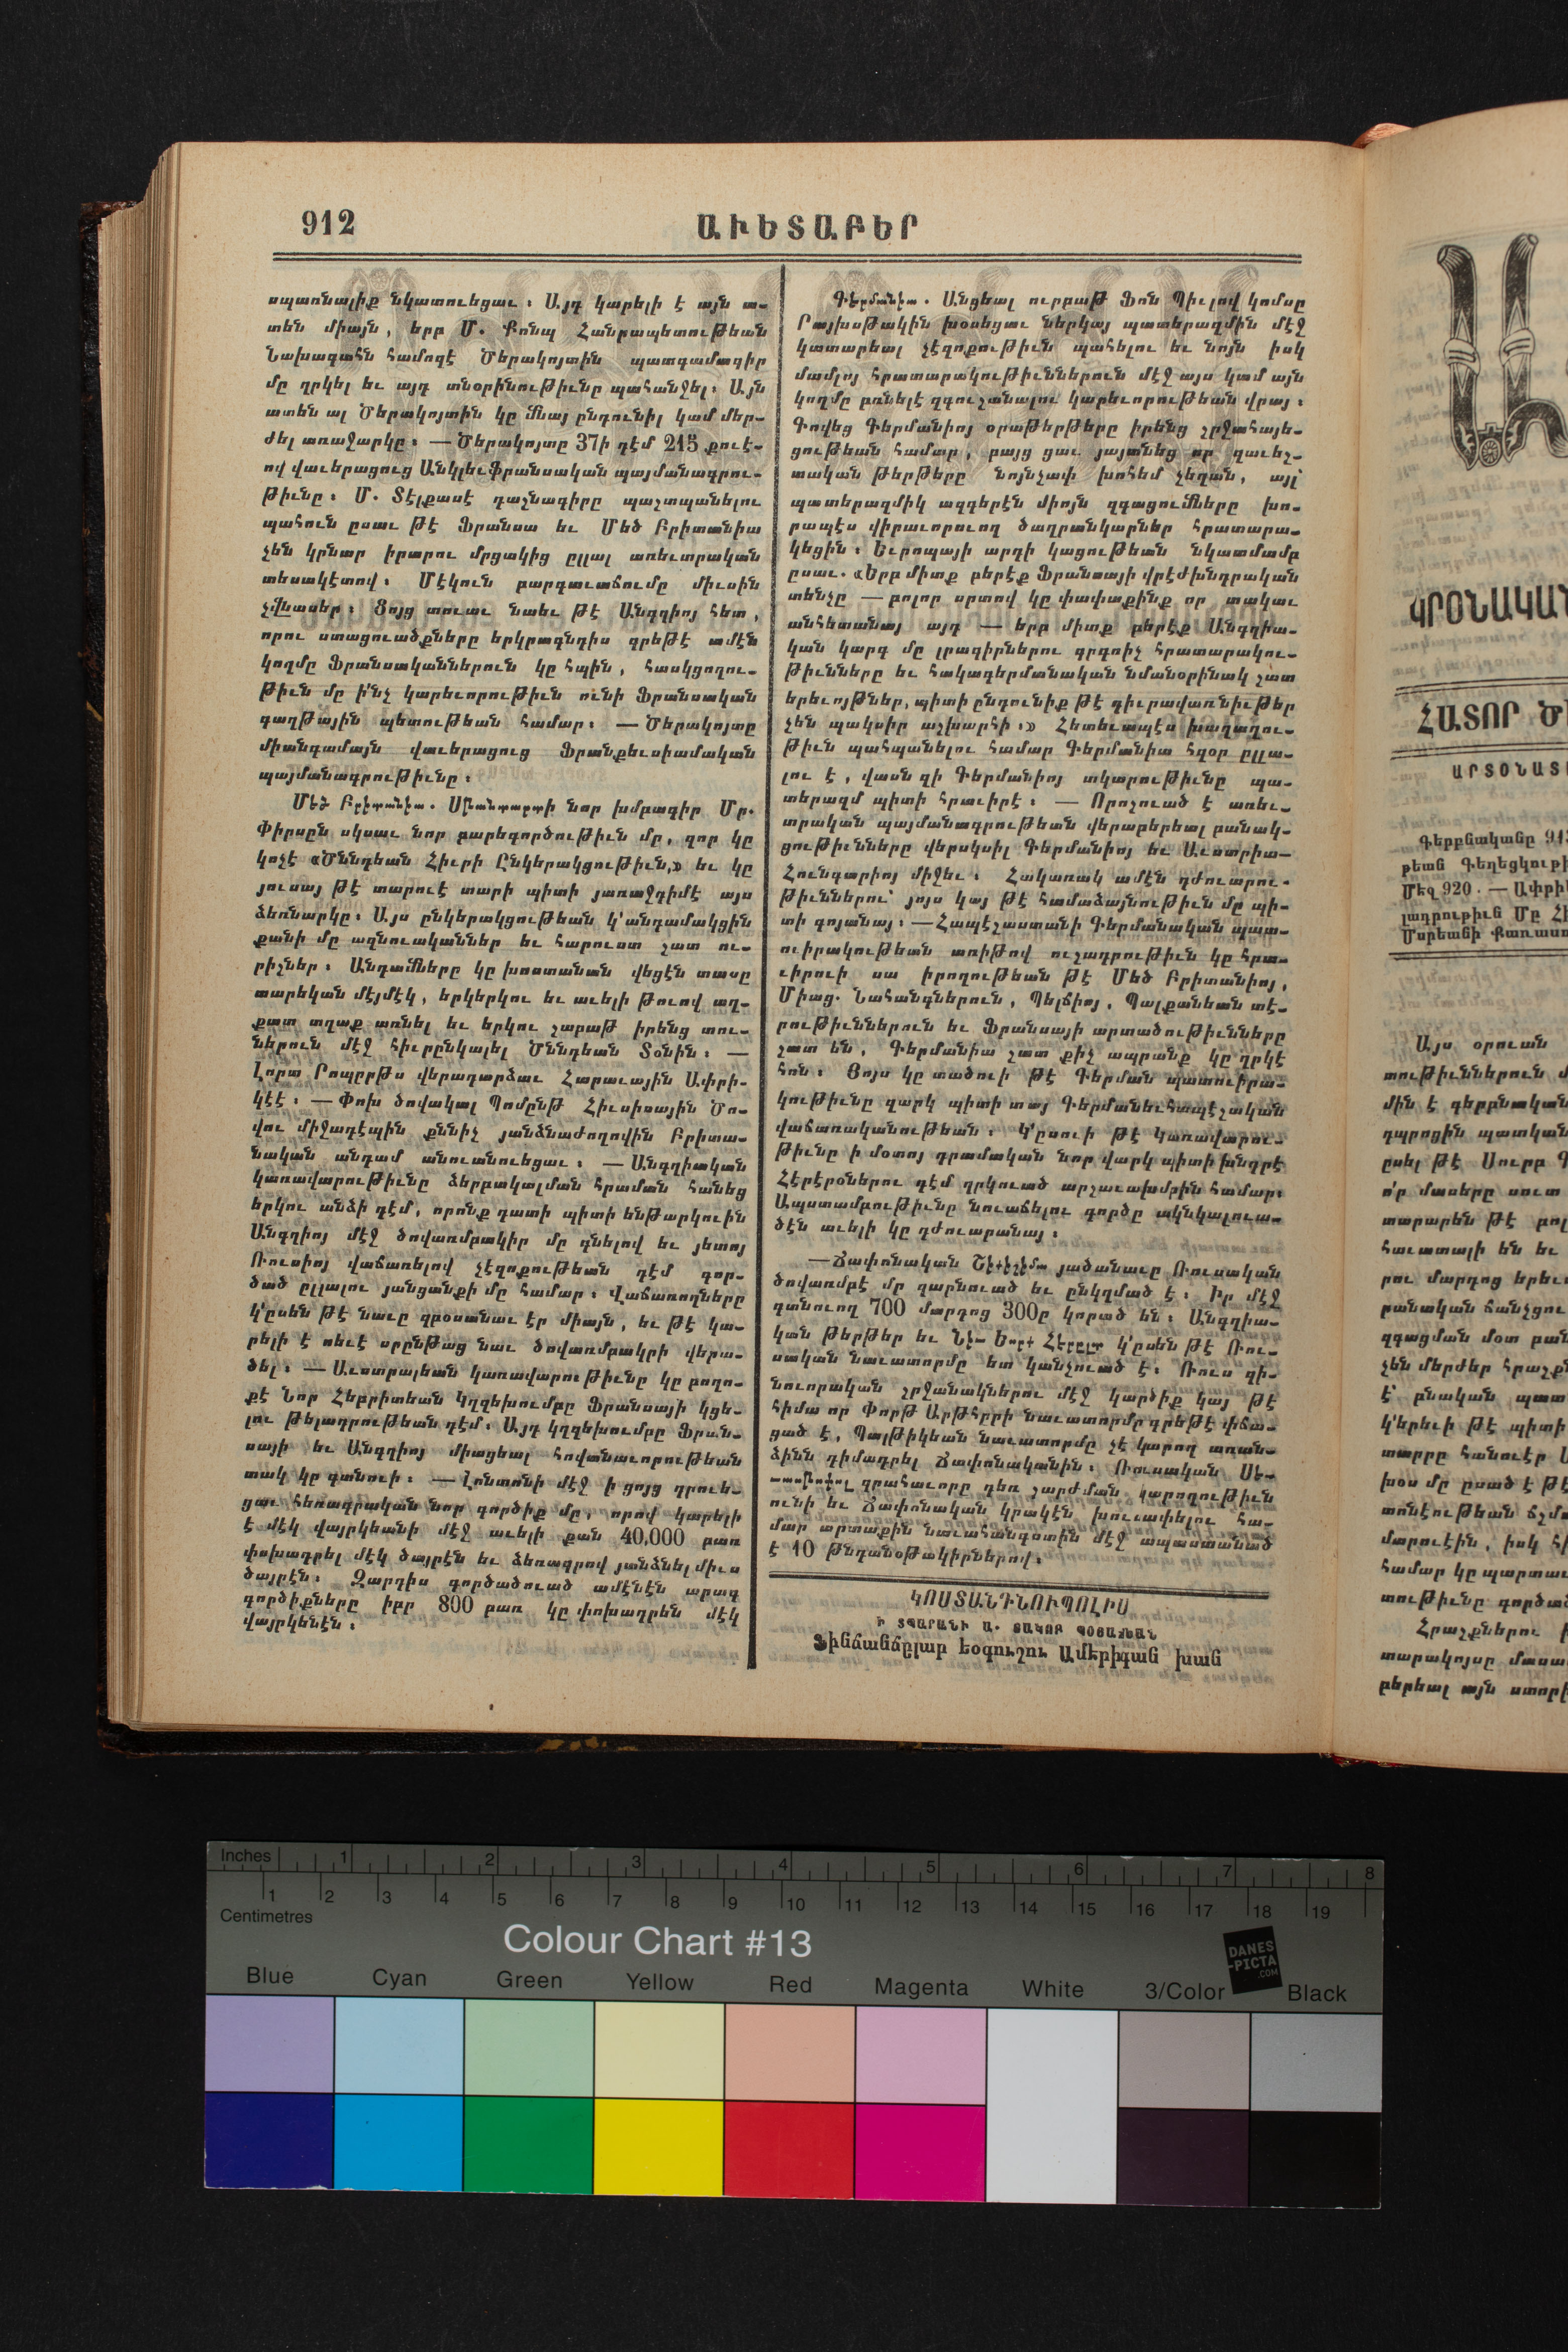 912
ԱՒԵՏԱԲԵՐ
սպառնալիք նկատուեցաւ։ Այդ կարելի է այն ա-
տեն միայն, երբ Մ. Քոնպ Հանրապետութեան
Նախագահն համոզէ Ծերակոյտին պատգամագիր
մը ղրկել եւ այդ տնօրինութիւնը պահանջել։ Այն
ատեն ալ Ծերակոյտին կը մնայ ընդունիլ կամ մեր-
ժել առաջարկը։ — Ծերակոյտը 37ի դէմ 215 քուէ-
ով վաւերացուց Անկլեւֆրանսական պայմանագրու-
թիւնը։ Մ. Տէլքասէ դաշնագիրը պաշտպանելու
պահուն ըսաւ թէ Ֆրանսա եւ Մեծ Բրիտանիա
չեն կրնար իրարու մրցակից ըլլալ առեւտրական
տեսակէտով։ Մէկուն բարգաւաճումը միւսին
չվնասեր։ Ցոյց տուաւ նաեւ թէ Անգղիոյ հետ,
որու ստացուածքները երկրագնդիս գրեթէ ամէն
կողմը Ֆրանսականներուն կը հպին, հասկցողու-
թիւն մը ի՛նչ կարեւորութիւն ունի Ֆրանսական
գաղթային պետութեան համար։ — Ծերակոյտը
միանգամայն վաւերացուց Ֆրանքեւսիամական
պայմանագրութիւնը։
Մեծ Բրիտանիա. Սթանտարտի նոր խմբագիր Մր.
Փիրսըն սկսաւ նոր բարեգործութիւն մը, զոր կը
կոչէ «Ծննդեան Հիւրի Ընկերակցութիւն,» եւ կը
յուսայ թէ տարուէ տարի պիտի յառաջդիմէ այս
ձեռնարկը։ Այս ընկերակցութեան կ՚անդամակցին
քանի մը ազնուականներ եւ հարուստ շատ ու-
րիշներ։ Անդամները կը խոստանան վեցէն տասը
տարեկան մէյմէկ, երկերկու եւ աւելի թուով աղ-
քատ տղաք առնել եւ երկու շաբաթ իրենց տու-
ներուն մէջ հիւրընկալել Ծննդեան Տօնին։ —
Լորտ Րոպըրթս վերադարձաւ Հարաւային Ափրի-
կէէ։ — Փոխ ծովակալ Պոմընթ Հիւսիսային Ծո-
վու միջադէպին քննիչ յանձնաժողովին Բրիտա-
նական անդամ անուանուեցաւ։ — Անգղիական
կառավարութիւնը ձերբակալման հրաման հանեց
երկու անձի դէմ, որոնք դատի պիտի ենթարկուին
Անգղիոյ մէջ ծովառմբակիր մը գնելով եւ յետոյ
Ռուսիոյ վաճառելով չէզոքութեան դէմ գոր-
ծած ըլլալու յանցանքի մը համար։ Վաճառողները
կ՚ըսեն թէ նաւը զբօսանաւ էր միայն, եւ թէ կա-
րելի է ոեւէ սրընթաց նաւ ծովառմբակրի վերա-
ծել։ — Աւստրալեան կառավարութիւնը կը բողո-
քէ Նոր Հեբրիտեան Կղզեխումբը Ֆրանսայի կցե-
լու թելադրութեան դէմ։ Այդ կղզեխումբը Ֆրան-
սայի եւ Անգղիոյ միացեալ հովանաւորութեան
տակ կը գտնուի։ — Լոնտոնի մէջ ի ցոյց դրուե-
ցաւ հեռագրական նոր գործիք մը, որով կարելի
է մէկ վայրկեանի մէջ աւելի քան 40,000 բառ
փոխադրել մէկ ծայրէն եւ ձեռագրով յանձնել միւս
ծայրէն։ Զարդիս գործածուած ամէնէն արագ
գործիքները իբր 800 բառ կը փոխադրեն մէկ
վայրկենէն։
Գերմանիա. Անցեալ ուրբաթ Ֆոն Պիւլով կոմսը
Րայխսթակին խօսեցաւ ներկայ պատերազմին մէջ
կատարեալ չէզոքութիւն պահելու եւ նոյն իսկ
մամլոյ հրատարակութիւններուն մէջ այս կամ այն
կողմը բռնելէ զգուշանալու կարեւորութեան վրայ։
Գովեց Գերմանիոյ օրաթերթերը իրենց շրջահայե-
ցութեան համար, բայց ցաւ յայտնեց որ զաւեշ-
տական թերթերը նոյնչափ խոհեմ չեղան, այլ՝
պատերազմիկ ազգերէն միոյն զգացումները խո-
րապէս վիրաւորուող ծաղրանկարներ հրատարա-
կեցին։ Եւրոպայի արդի կացութեան նկատմամբ
ըսաւ. «Երբ միտք բերէք Ֆրանսայի վրէժխնդրական
տենչը — բոլոր սրտով կը փափաքինք որ տակաւ
անհետանայ այդ — երբ միտք բերէք Անգղիա-
կան կարգ մը լրագիրներու գրգռիչ հրատարակու-
թիւնները եւ հակագերմանական նմանօրինակ շատ
երեւոյթներ, պիտի ընդունիք թէ դիւրավառ նիւթեր
չեն պակսիր աշխարհի։» Հետեւապէս խաղաղու-
թիւն պահպանելու համար Գերմանիա հզօր ըլլա-
լու է, վասն զի Գերմանիոյ տկարութիւնը պա-
տերազմ պիտի հրաւիրէ։ — Որոշուած է առեւ-
տրական պայմանագրութեան վերաբերեալ բանակ-
ցութիւնները վերսկսիլ Գերմանիոյ եւ Աւստրիա-
Հունգարիոյ միջեւ։ Հակառակ ամէն դժուարու-
թիւններու՝ յոյս կայ թէ համաձայնութիւն մը պի-
տի գոյանայ։ — Հապէշաստանի Գերմանական պատ-
ուիրակութեան առիթով ուշադրութիւն կը հրա-
ւիրուի սա իրողութեան թէ Մեծ Բրիտանիոյ,
Միաց. Նահանգներուն, Պելճիոյ, Պալքանեան տէ-
րութիւններուն եւ Ֆրանսայի արտածութիւնները
շատ են, Գերմանիա շատ քիչ ապրանք կը ղրկէ
հոն։ Յոյս կը տածուի թէ Գերման պատուիրա-
կութիւնը զարկ պիտի տայ Գերմանեւհապէշական
վաճառականութեան։ Կ՚ըսուի թէ Կառավարու-
թիւնը ի մօտոյ դրամական նոր վարկ պիտի խնդրէ
Հէրէրօներու դէմ ղրկուած արշաւախմբին համար։
Ապստամբութիւնը նուաճելու գործը ակնկալուա-
ծէն աւելի կը դժուարանայ։
— Ճափոնական Շիքիշիմա յածանաւը Ռուսական
ծովառմբէ մը զարնուած եւ ընկղմած է։ Իր մէջ
գտնուող 700 մարդոց 300ը կորած են։ Անգղիա-
կան թերթեր եւ Նիւ Եորք Հէրըլտ կ՚ըսեն թէ Ռու-
սական նաւատորմը ետ կանչուած է։ Ռուս զի-
նուորական շրջանակներու մէջ կարծիք կայ թէ
հիմա որ Փորթ Արթհըրի նաւատորմը գրեթէ փճա-
ցած է, Պալթիկեան նաւատորմը չէ կարող առան-
ձինն դիմադրել Ճափոնականին։ Ռուսական Սե-
ւասթոփոլ զրահաւորը դեռ շարժման կարողութիւն
ունի եւ Ճափոնական կրակէն խուսափելու հա-
մար արտաքին նաւահանգստին մէջ ապաստանած
է 10 թնդանօթակիրներով։
ԿՈՍՏԱՆԴՆՈՒՊՈԼԻՍ
Ի ՏՊԱՐԱՆԻ Ա. ՅԱԿՈԲ ՊՕՅԱՃԵԱՆ
Ֆինճանճըլար եօգուշու Ամերիգան խան
ԿՐՕՆԱԿԱՆ
ՀԱՏՈՐ Ծ
ԱՐՏՕՆԱՏ
Գերբնականը 913
թեան Գեղեցկութի
Մեզ 920. — Ափրի
լադրութիւն Մը Հի
Մսրեանի Քառաս
Այս օրուան
տութիւններուն մ
մին է գերբնական
դպրոցին պատկան
ըսել թէ Սուրբ Գ
ո՛ր մասերը սուտ
տարարեն թէ բոլ
հաւատալի են եւ
րու մարդոց երեւ
բանական ճանչցու
զգացման մօտ բան
չեն մերժեր հրաշքն
է՝ բնական պատ
կ՚երեւի թէ պիտի
տարրը հանուէր Ս
խօս մը ըսած է թէ
տօնէութեան ճշմ
մարուէին, իսկ հի
համար կը պարտաւ
տութիւնը գործած
Հրաշքներու ի
տարակոյսը մասա
բերեալ այն ստորի
Inches 1 2 3 4 5 6 7 8
1 2 3 4 5 6 7 8 9 10 11 12 13 14 15 16 17 18 19
Centimetres
Colour Chart #13
DANES
-PICTA
.COM
Blue Cyan Green Yellow Red Magenta White 3/Color Black